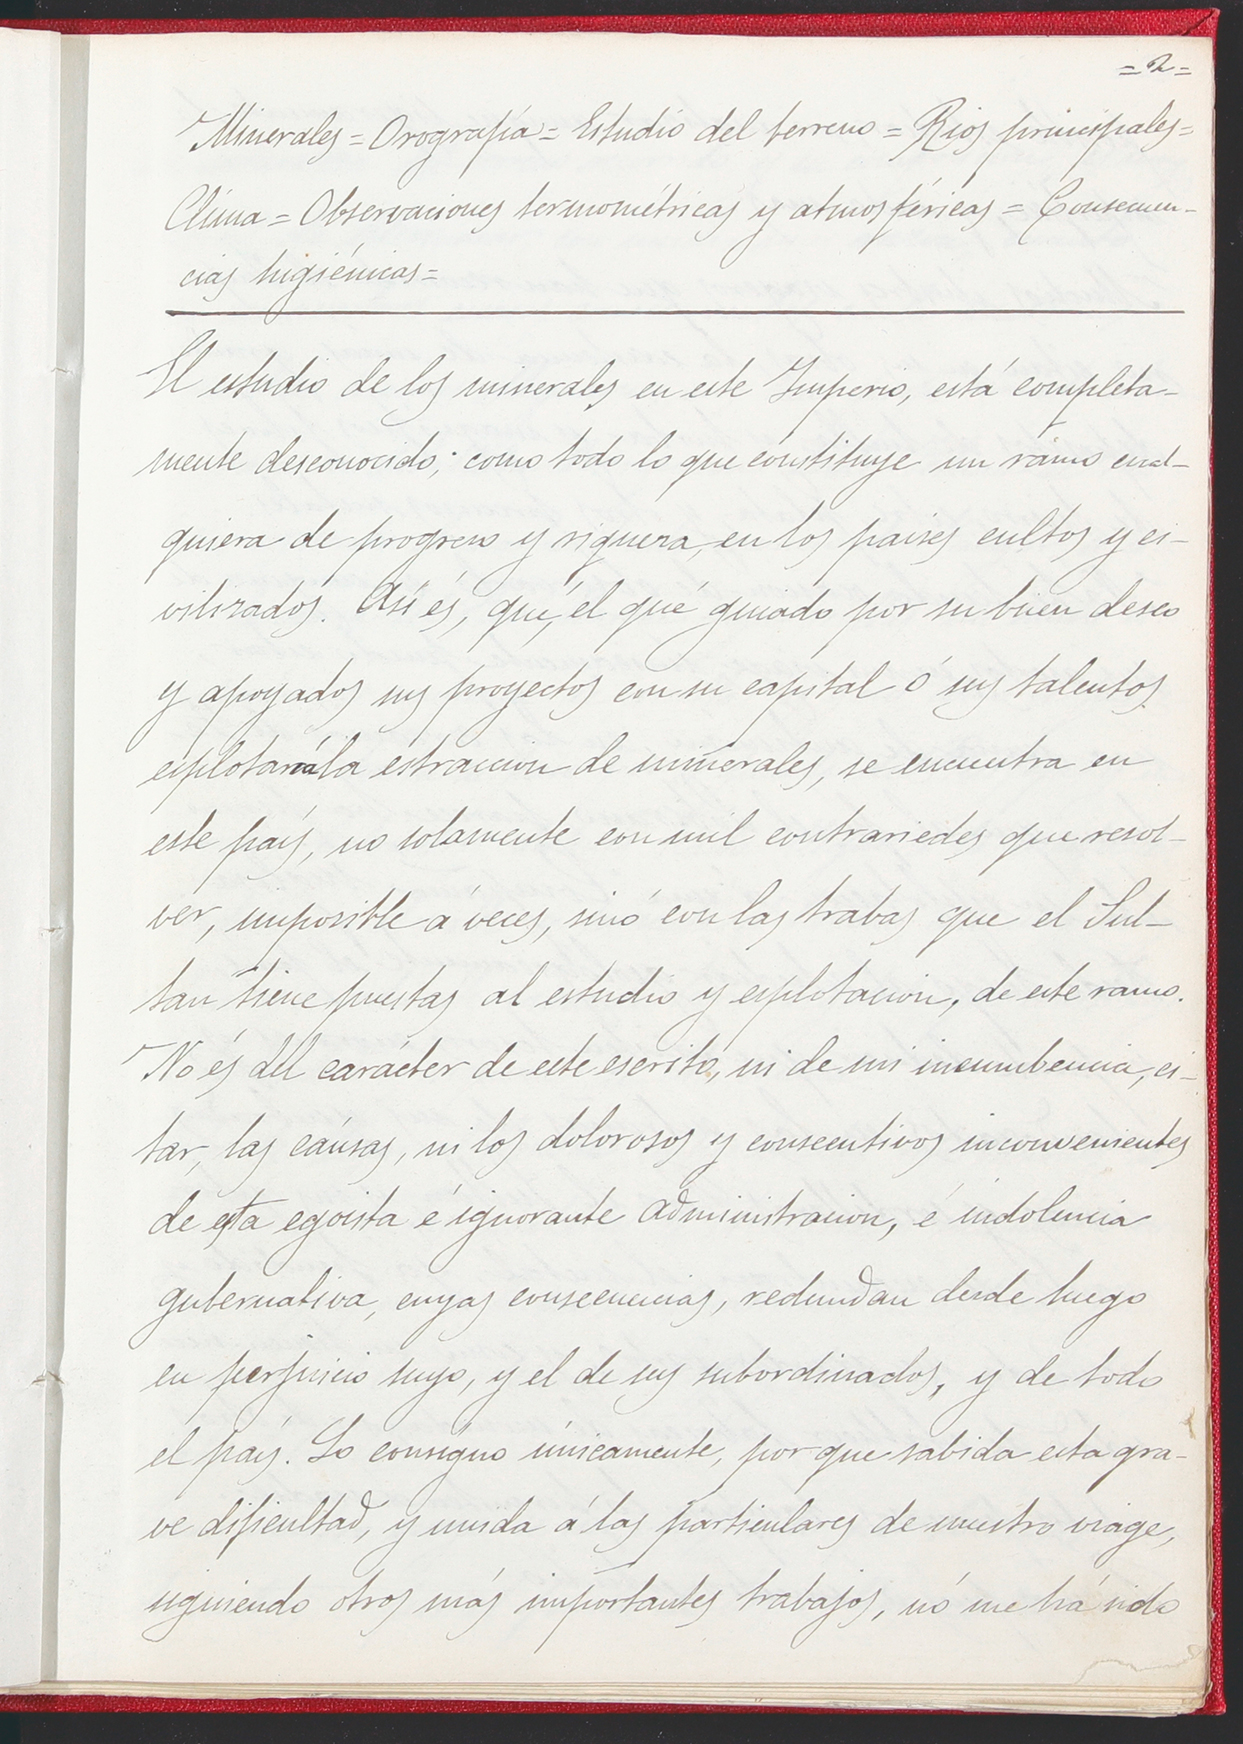 =2=
Minerales = Orografía = Estudio del terreno = Rios principales =
Clima = Observaciones termométricas y atmosféricas = Consecuen-
cias higiénicas =
El estudio de los minerales en este Imperio, está completa-
mente desconocido; como todo lo que constituye un ramo cual-
quiera de progreso y riqueza, en los paises cultos y ci-
vilizados. Así és, qué, el qué guiado por su buen deseo
y apoyados sus proyectos con su capital ó sus talentos
esplotará la estraccion de minerales, se encuentra en
este país, no solamente con mil contrariedes que resol-
ver, imposible á veces, sinó con las trabas que el Sul-
tan tiene puestas al estudio y esplotacion, de este ramo.
No és del carácter de este escrito, ni de mi incumbencia, ci-
tar, las cáusas, ni los dolorosos y consecutivos inconvenientes
de esta egoista é ignorante administracion, é indolencia
gubernativa, cuyas consecuencias, redundan desde luego
en perjuicio suyo, y el de sus subordinados, y de todo
el país. Lo consigno únicamente, por que sabida esta gra-
ve dificultad, y unida á las particulares de nuestro viage,
siguiendo otros más importantes trabajos, nó me há sido